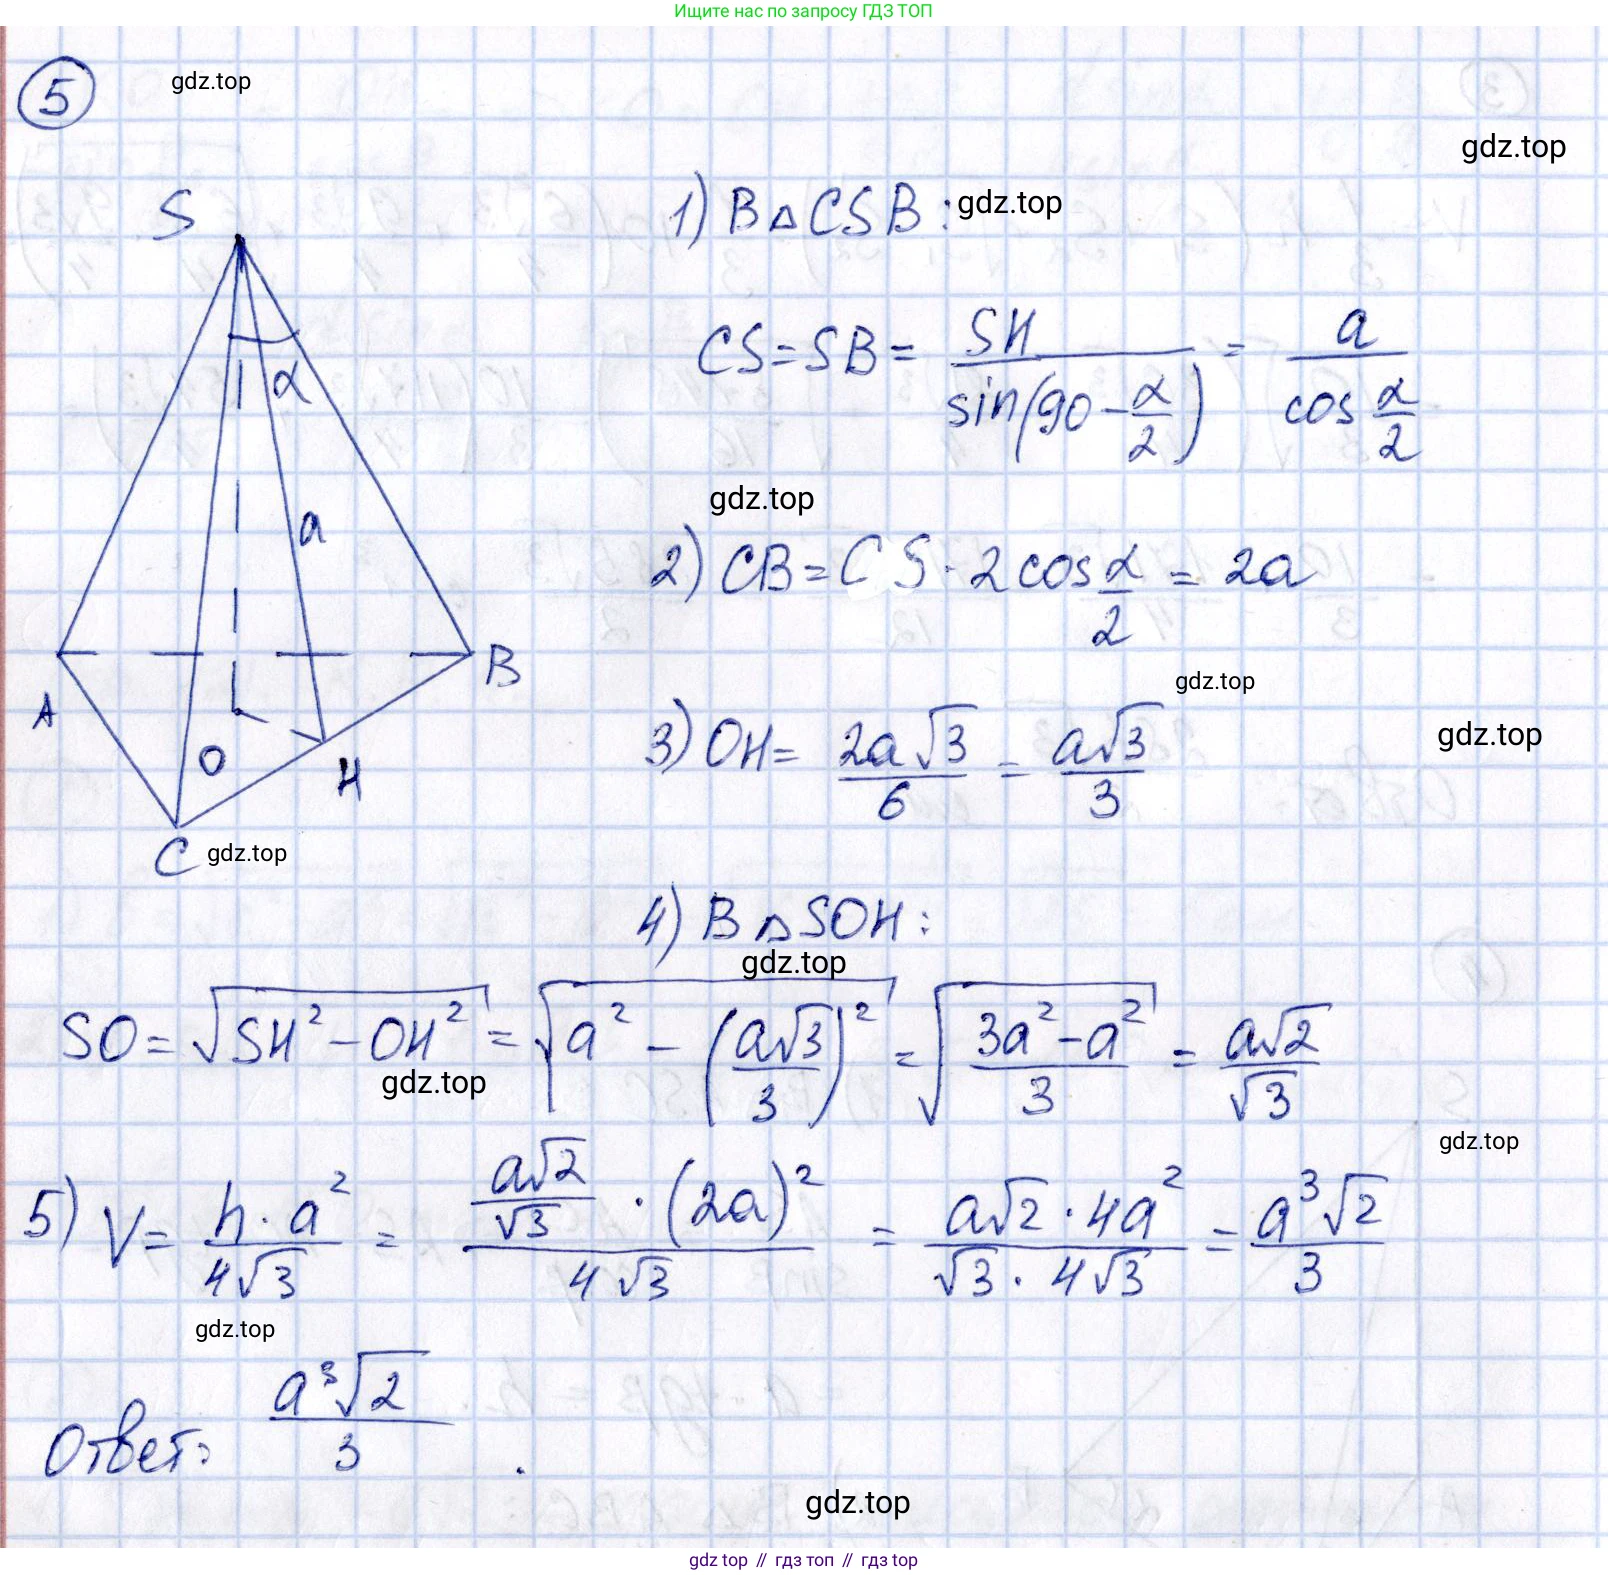 Ищите нас по запросу ГДЗ ТОП
5
gdz.top
gdz.top
S
α
a
A
B
O
H
C
gdz.top
1) В △ CSB: gdz.top
CS = SB = SH / sin(90 - α/2) = a / cos α/2
gdz.top
2) CB = CS · 2 cos α/2 = 2a
gdz.top
3) OH = 2a√3 / 6 = a√3 / 3
gdz.top
4) В △ SOH:
gdz.top
SO = √(SH² - OH²) = √(a² - (a√3 / 3)²) = √((3a² - a²) / 3) = a√2 / √3
gdz.top
gdz.top
5) V = h · a² / 4√3 = (a√2 / √3 · (2a)²) / 4√3 = a√2 · 4a² / √3 · 4√3 = a³√2 / 3
gdz.top
Ответ: a³√2 / 3.
gdz.top
gdz top // гдз топ // gdz top